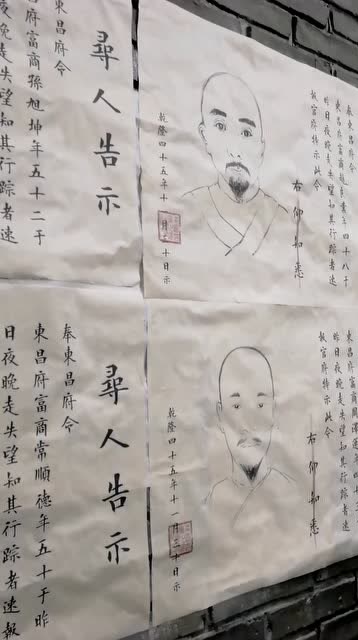 尋人告示
東昌府令
昌府富商孫旭坤年五十二于
夜晚走失望知其行踪者速
奉東昌府令
東昌府富商年四十八于
昨日夜晚走失望知其行踪者速
官府特示此令
右仰知悉
乾隆四十五年十月十日示
尋人告示
奉東昌府令
東昌府富商常順德年五十于昨
日夜晚走失望知其行踪者速報
東昌府富商
昨日夜晚走失望知其行踪者速
官府特示此令
右仰知悉
乾隆四十五年十一月三十日示